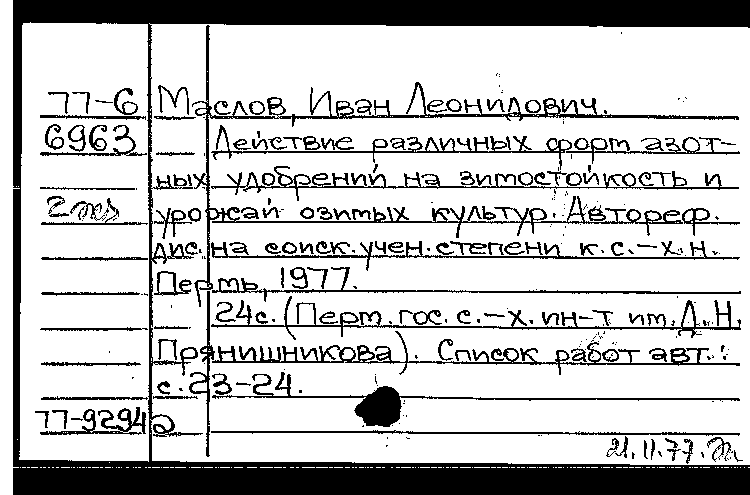 77-6 Маслов, Иван Леонидович.
6963 Действие различных форм азот-
ных удобрений на зимостойкость и
2 экз урожай озимых культур. Автореф.
дис. на соиск. учен. степени к.с.-х.н.
Пермь, 1977.
24с. (Перм. гос. с.-х. ин-т им. Д.Н.
Прянишникова). Список работ авт.:
с. 23-24.
77-9294а
21.11.77.